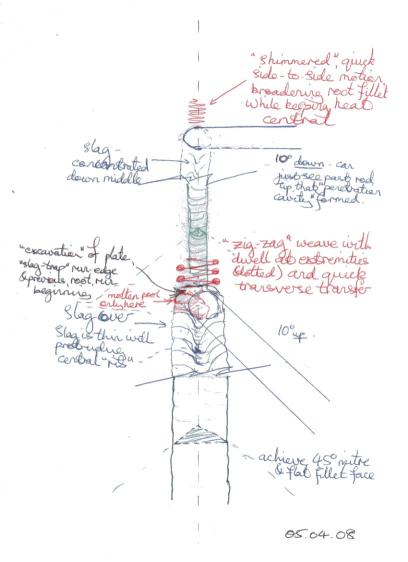 "shimmered", quick
side-to-side motion
broadening root fillet
while keeping heat
central
slag -
concentrated
down middle
10° down - can
just see past rod
tip that "penetration
cavity" formed.
"excavation" of plate,
"slag-trap" run-edge
& previous, root, run
beginning
"zig-zag" weave with
dwell at extremities
(dotted) and quick
transverse transfer
molten pool
only here
Slag over
Slag is thin with
protruding
central "rib"
10° up.
achieve 45° mitre
& flat fillet face
05.04.08